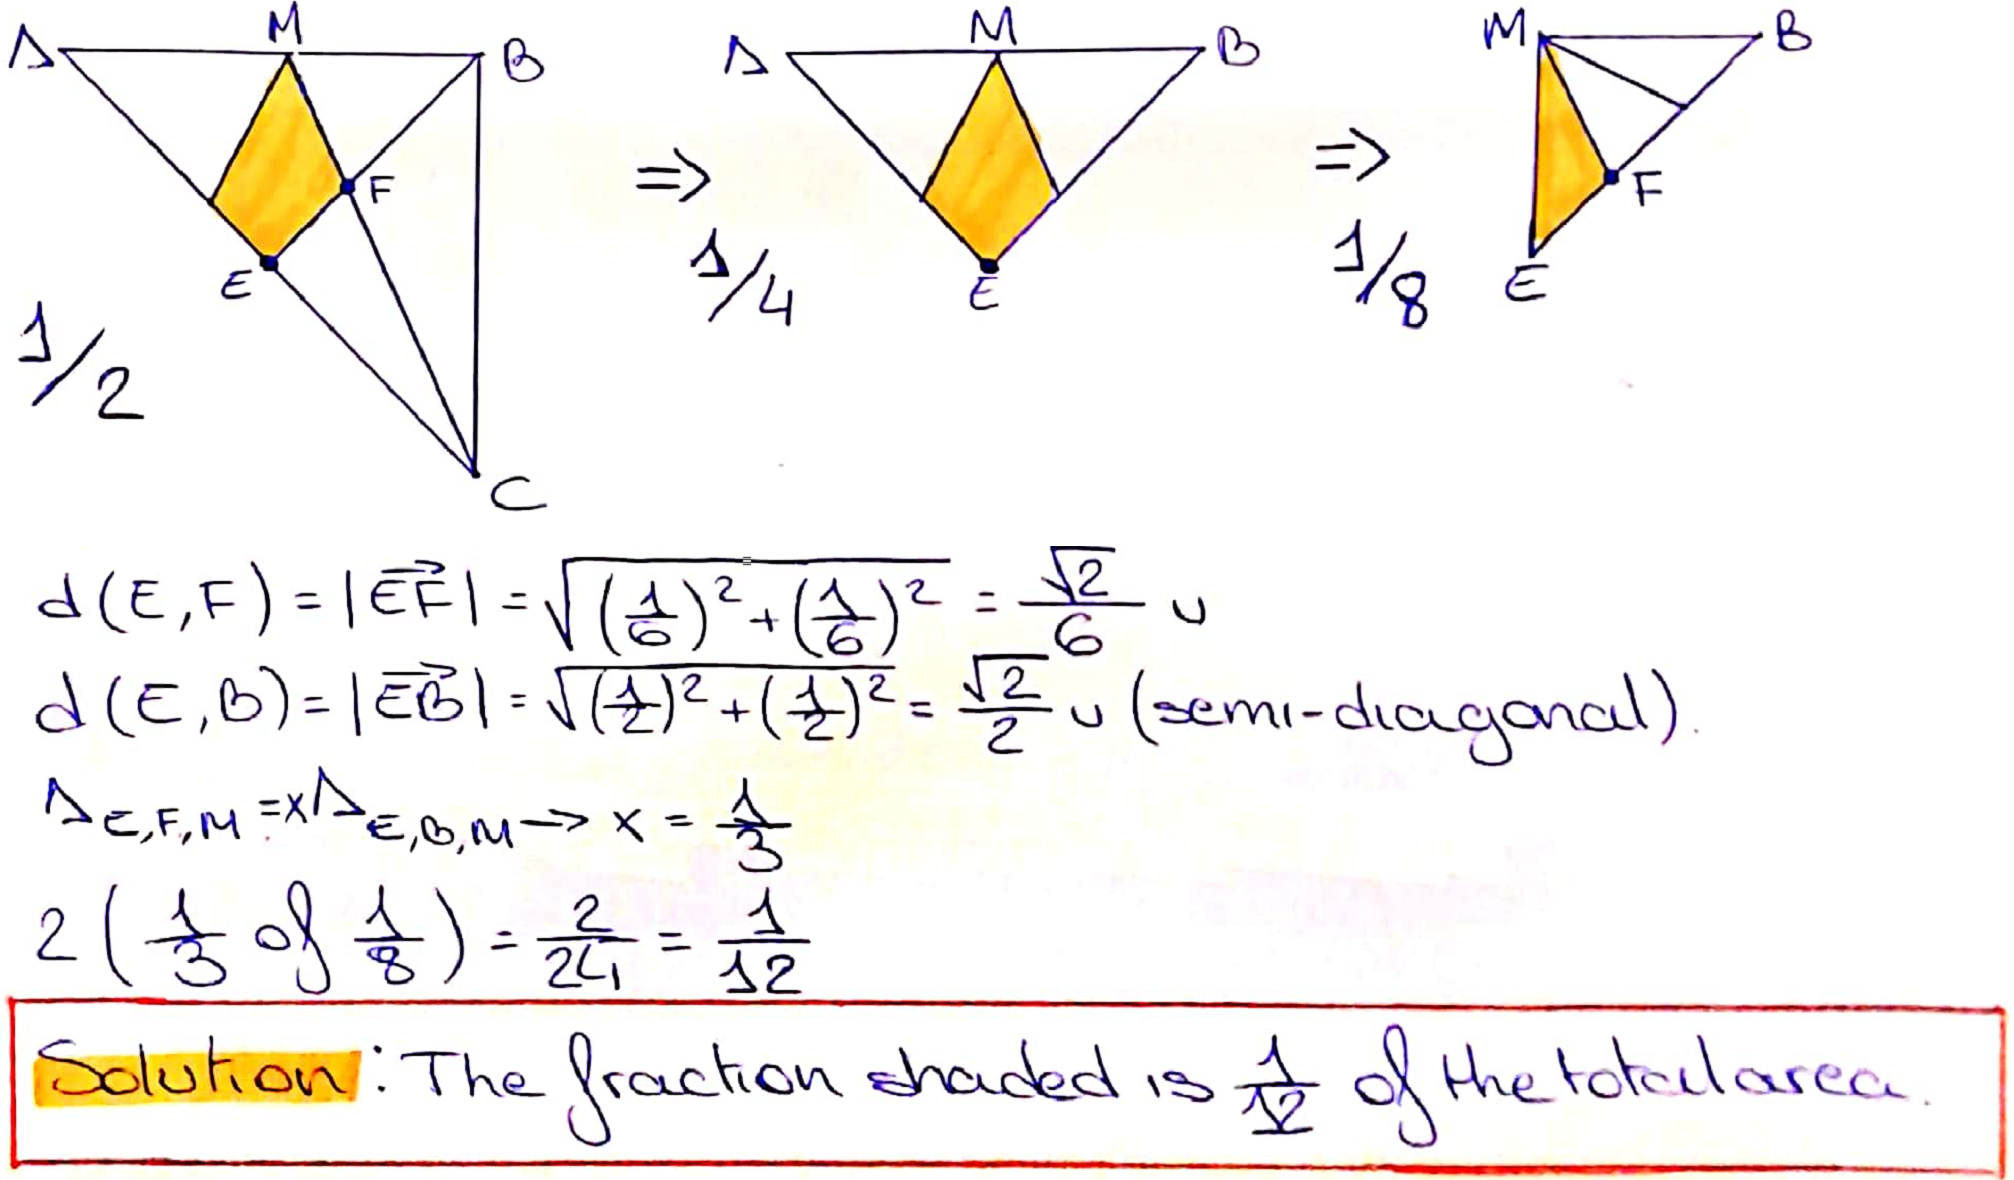 A M B A M B M B
F ⇒ ⇒ F
E 1/4 E 1/8 E
1/2
C
d(E,F) = |EF⃗| = √((1/6)² + (1/6)²) = √2/6 u
d(E,B) = |EB⃗| = √((1/2)² + (1/2)²) = √2/2 u (semi-diagonal).
△E,F,M = x△E,B,M → x = 1/3
2(1/3 of 1/8) = 2/24 = 1/12
Solution: The fraction shaded is 1/12 of the total area.